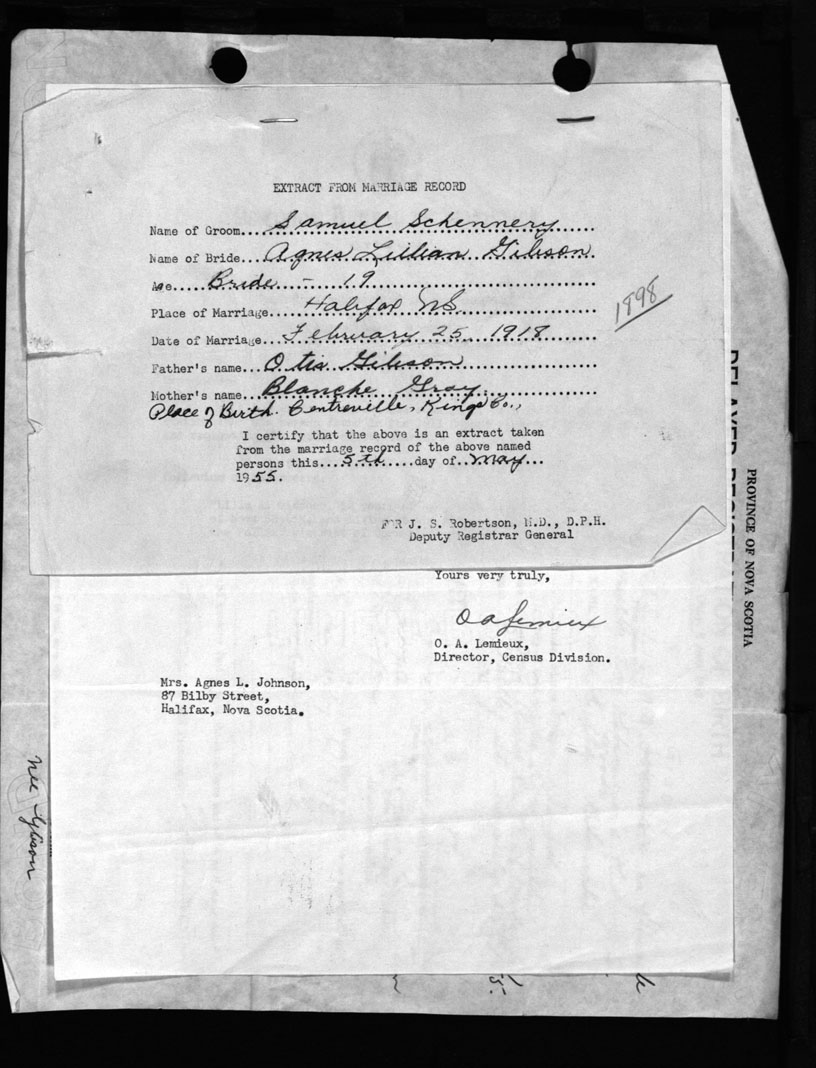 EXTRACT FROM MARRIAGE RECORD
Name of Groom....Samuel Schennery......
Name of Bride...Agnes Lillian Gibson.
Age.....Bride - 19.....
Place of Marriage.....Halifax NS.....
Date of Marriage...February 25, 1918...
1898
Father's name...Otis Gibson.....
Mother's name...Blanche Gray.....
Place of Birth. Centreville, Kings Co.,
I certify that the above is an extract taken
from the marriage record of the above named
persons this....5th.....day of..May...
1955.
FOR J. S. Robertson, M.D., D.P.H.
Deputy Registrar General
Yours very truly,
O A Lemieux
O. A. Lemieux,
Director, Census Division.
Mrs. Agnes L. Johnson,
87 Bilby Street,
Halifax, Nova Scotia.
nee Gibson
PROVINCE OF NOVA SCOTIA